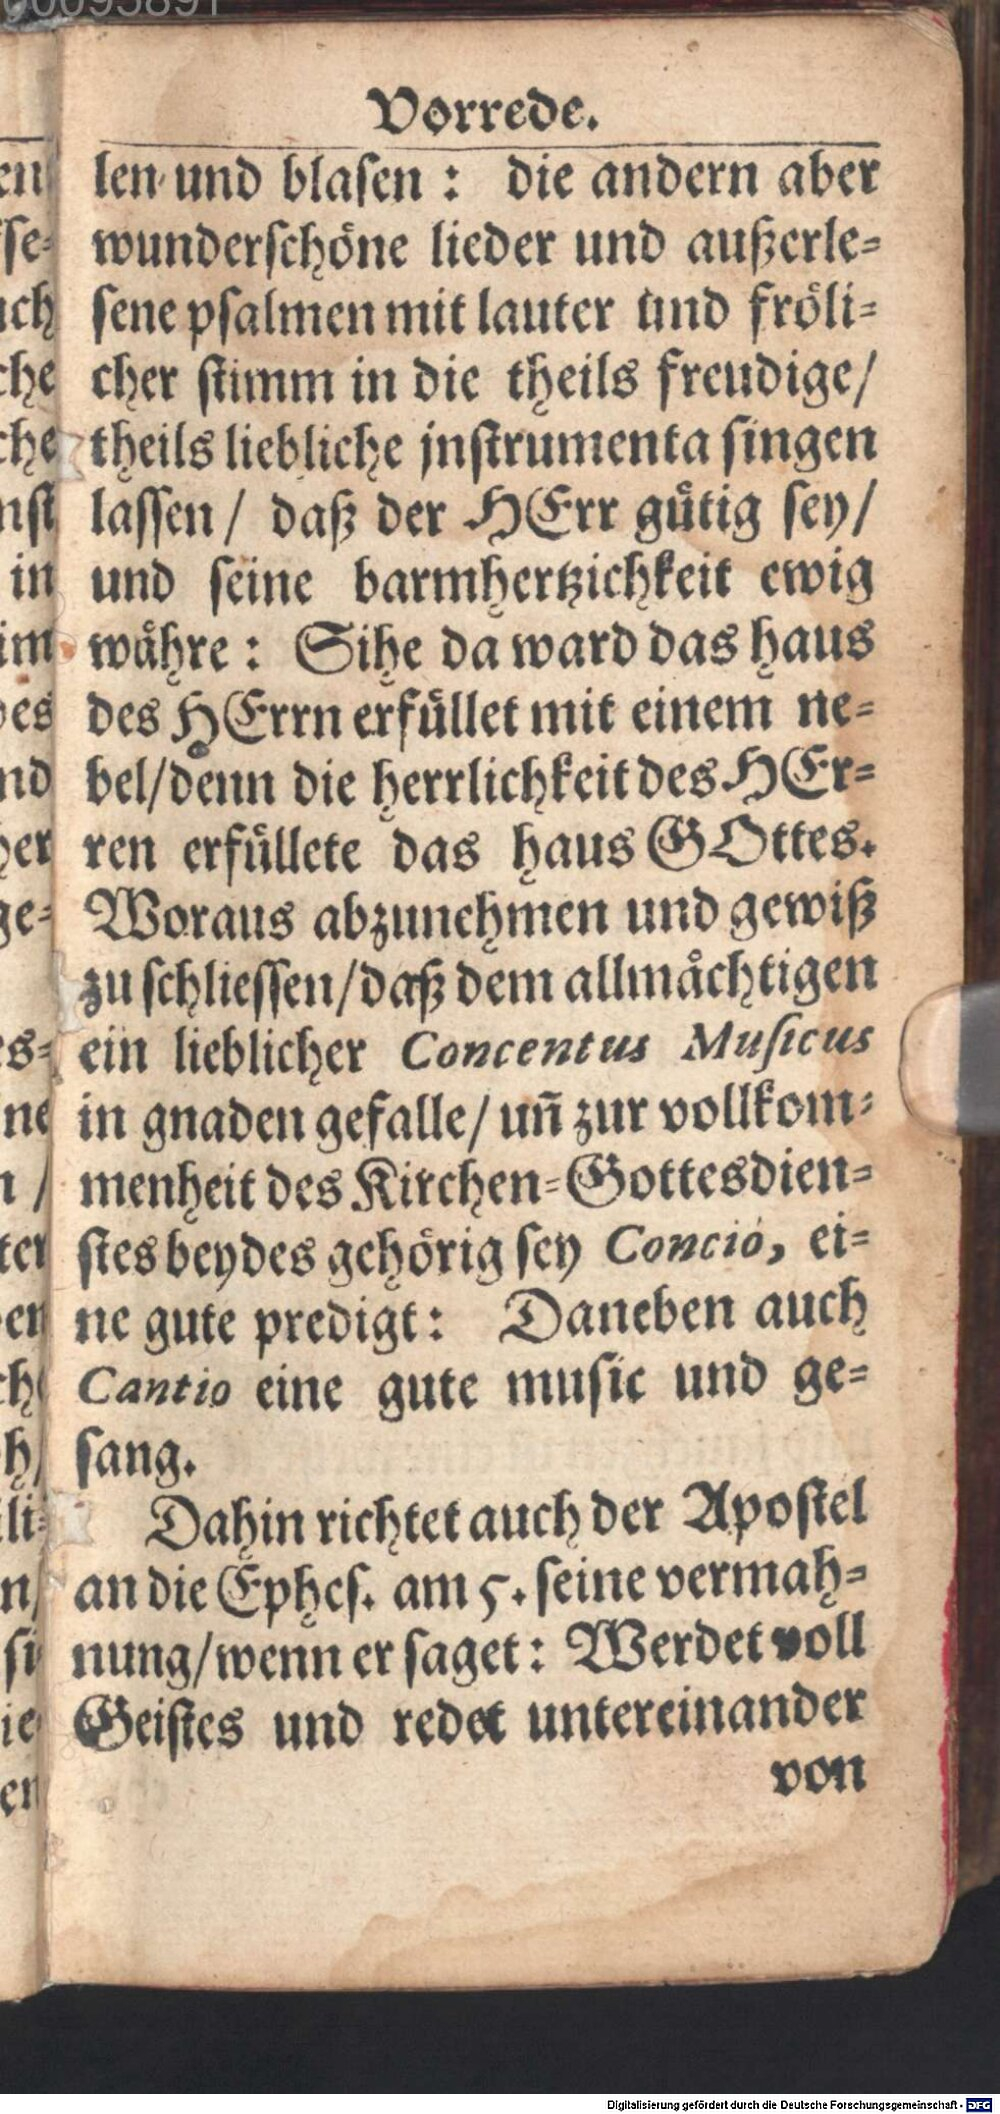 Vorrede.
len und blasen : die andern aber
wunderschöne lieder und außerle-
sene psalmen mit lauter und fröli-
cher stimm in die theils freudige/
theils liebliche jnstrumenta singen
lassen / daß der HErr gütig sey/
und seine barmhertzichkeit ewig
währe : Sihe da ward das haus
des HErrn erfüllet mit einem ne-
bel/denn die herrlichkeit des HEr-
ren erfüllete das haus GOttes.
Woraus abzunehmen und gewiß
zu schliessen/daß dem allmächtigen
ein lieblicher Concentus Musicus
in gnaden gefalle/ uñ zur vollkom-
menheit des Kirchen-Gottesdien-
stes beydes gehörig sey Concio, ei-
ne gute predigt : Daneben auch
Cantio eine gute music und ge-
sang.
Dahin richtet auch der Apostel
an die Ephes. am 5. seine vermah-
nung/wenn er saget : Werdet voll
Geistes und redet untereinander
von
Digitalisierung gefördert durch die Deutsche Forschungsgemeinschaft - DFG